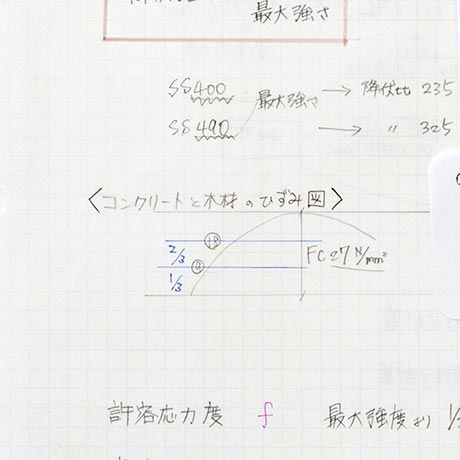 最大強さ
SS400 最大強さ → 降伏比 235
SS490 → 〃 325
〈コンクリートと木材のひずみ図〉
2/3 18
FC27 N/mm²
1/3 9
許容応力度 f 最大強度より 1/3